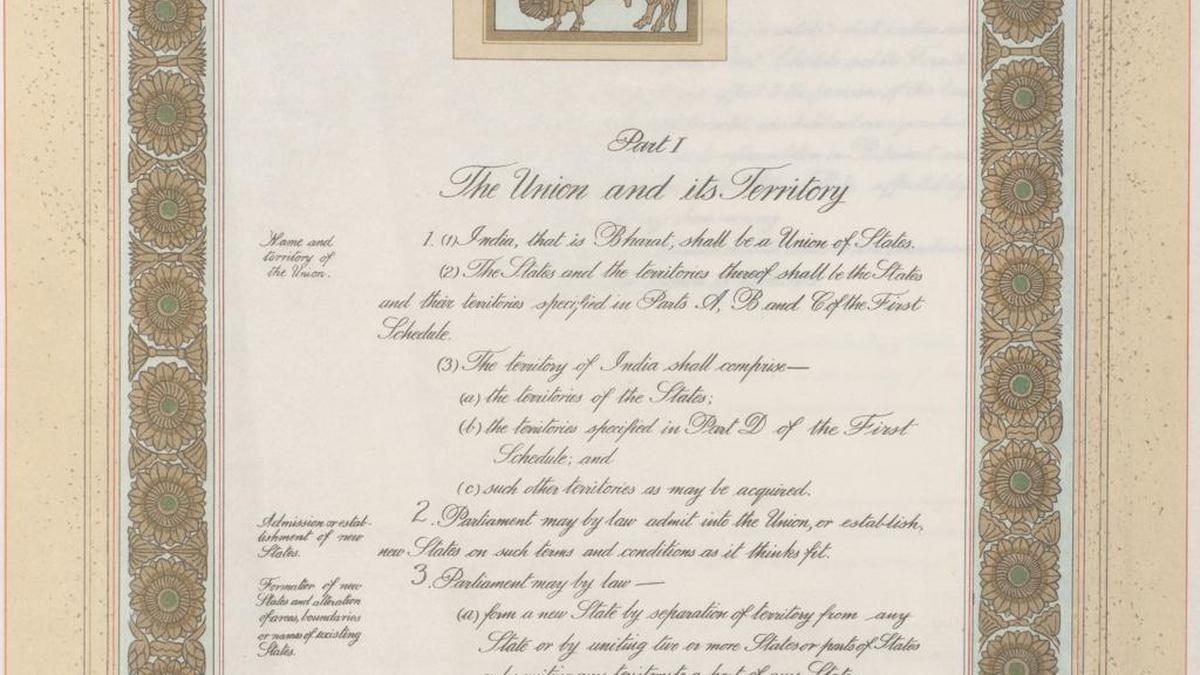 Part I
The Union and its Territory
Name and
territory of
the Union.
1. (1) India, that is Bharat, shall be a Union of States.
(2) The States and the territories thereof shall be the States
and their territories specified in Parts A, B and C of the First
Schedule.
(3) The territory of India shall comprise—
(a) the territories of the States;
(b) the territories specified in Part D of the First
Schedule; and
(c) such other territories as may be acquired.
Admission or estab-
lishment of new
States.
2. Parliament may by law admit into the Union, or establish,
new States on such terms and conditions as it thinks fit.
Formation of new
States and alteration
of areas, boundaries
or names of existing
States.
3. Parliament may by law —
(a) form a new State by separation of territory from any
State or by uniting two or more States or parts of States